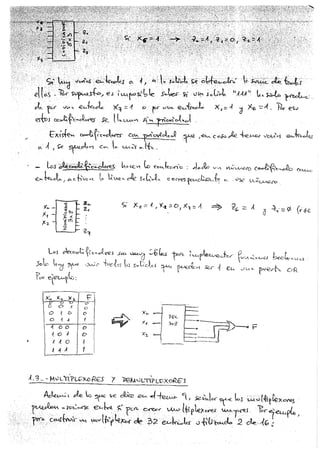 Si X₆=1 → Z₂=1, Z₁=0, Z₀=1
Si hay varias entradas a 1, a la salida se obtendrá la suma de todas
ellas. Por supuesto, es imposible saber si una salida "111" ha sido produci-
da por una entrada X₇=1 o por una entrada X₁=1 y X₆=1. Por eso
estos codificadores se llaman sin prioridad
Existen codificadores con prioridad que, en caso de tener varias entradas
a 1, se quedan con la más alta.
- Los decodificadores hacen lo contrario: dado un número codificado como
entrada, activan la línea de salida correspondiente a ese número.
Los decodificadores son muy útiles para implementar funciones booleanas
solo hay que unir todas las salidas que pueden ser 1 en una puerta OR
Por ejemplo:
X₂ X₁ X₀ F
0 1 0 0
0 1 1
1 0 0 0
1 0 1 0
1 1 0 1
1 1 1 1
DEC
3x8
F
1.3.- MULTIPLEXORES Y DEMULTIPLEXORES
Además de lo que se dice en el tema 9, señalar que los multiplexores
pueden asociarse entre sí para crear multiplexores mayores. Por ejemplo,
para construir un multiplexor de 32 entradas utilizando 2 de 16: